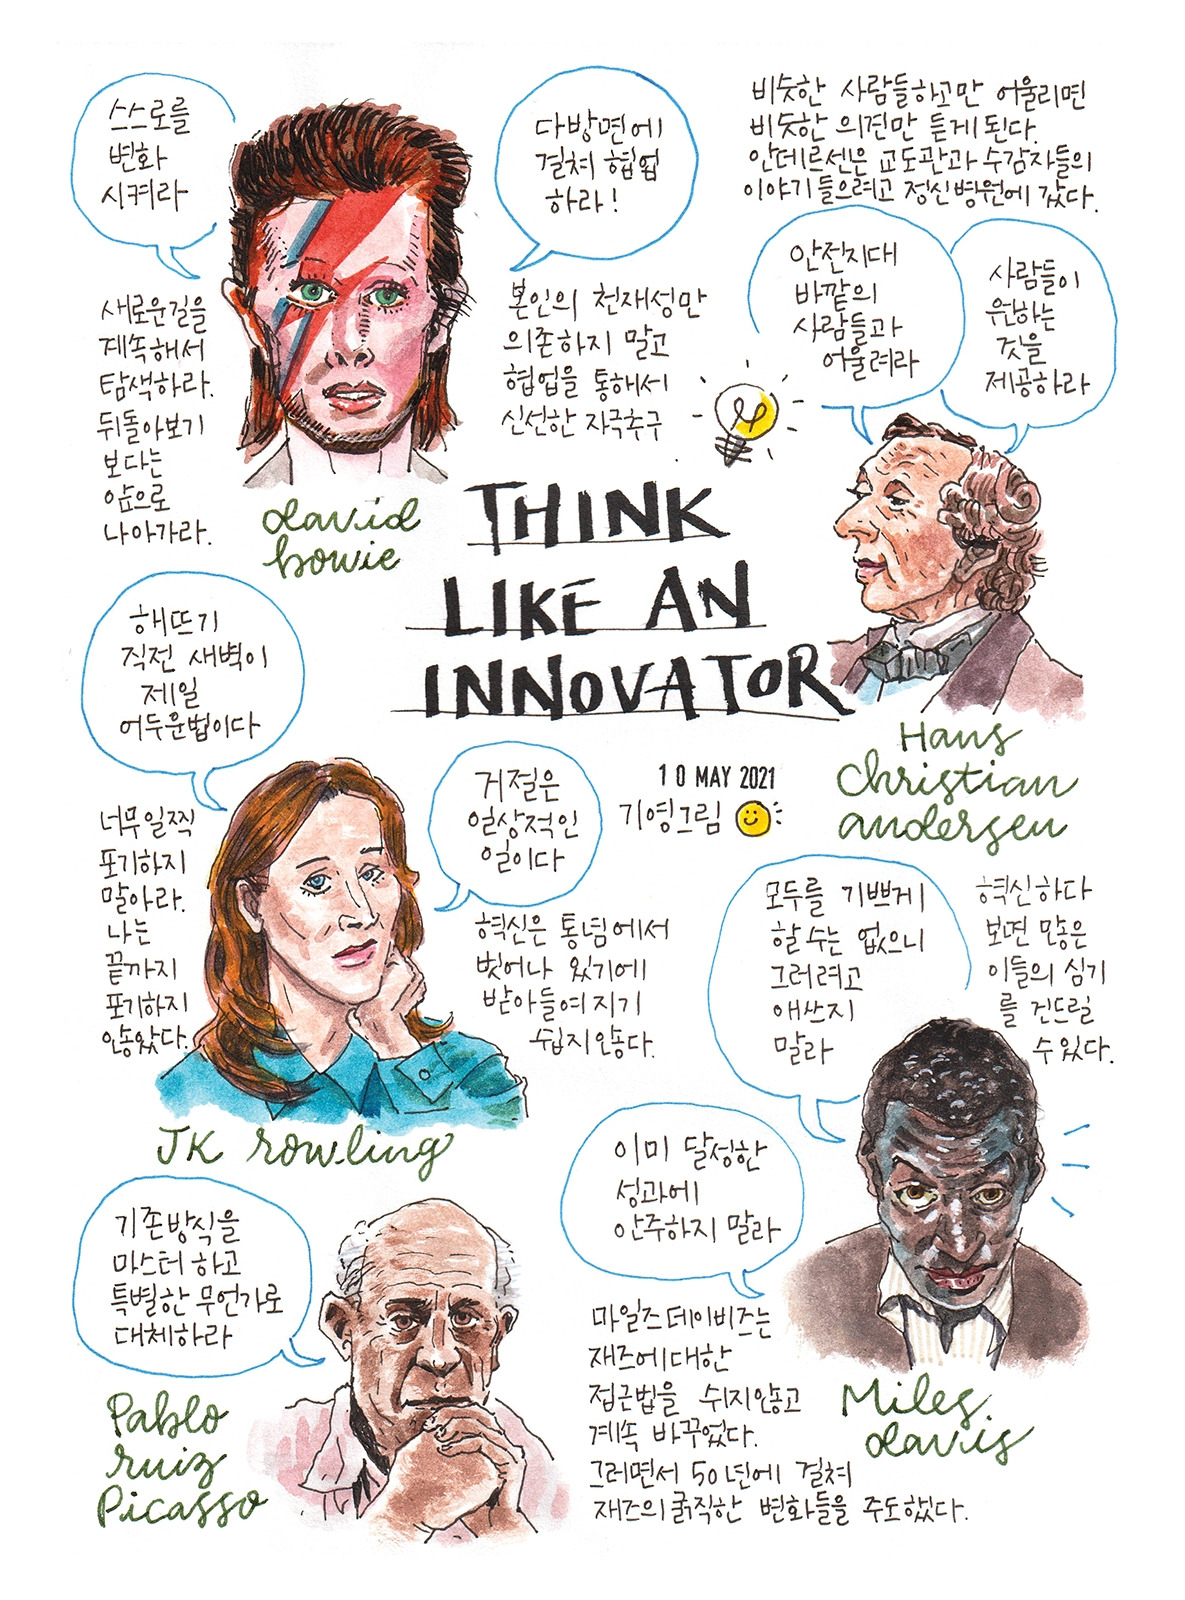 스스로를
변화
시켜라
새로운길을
계속해서
탐색하라.
뒤돌아보기
보다는
앞으로
나아가라.
david
bowie
다방면에
걸쳐 협업
하라!
본인의 천재성만
의존하지 말고
협업을 통해서
신선한 자극추구
비슷한 사람들하고만 어울리면
비슷한 의견만 듣게 된다.
안데르센은 교도관과 수감자들의
이야기 들으려고 정신병원에 갔다.
안전지대
바깥의
사람들과
어울려라
사람들이
원하는
것을
제공하라
Hans
christian
andersen
THINK
LIKE AN
INNOVATOR
10 MAY 2021
기영그림
해뜨기
직전 새벽이
제일
어두운법이다
너무일찍
포기하지
말아라.
나는
끝까지
포기하지
않았다.
거절은
일상적인
일이다
혁신은 통념에서
벗어나 있기에
받아들여지기
쉽지않다.
JK rowling
모두를 기쁘게
할 수는 없으니
그러려고
애쓰지
말라
혁신하다
보면 많은
이들의 심기
를 건드릴
수 있다.
이미 달성한
성과에
안주하지 말라
마일즈 데이비즈는
재즈에대한
접근법을 쉬지않고
계속 바꾸었다.
그러면서 50년에 걸쳐
재즈의 굵직한 변화들을 주도했다.
Miles
davis
기존방식을
마스터 하고
특별한 무언가로
대체하라
Pablo
ruiz
Picasso